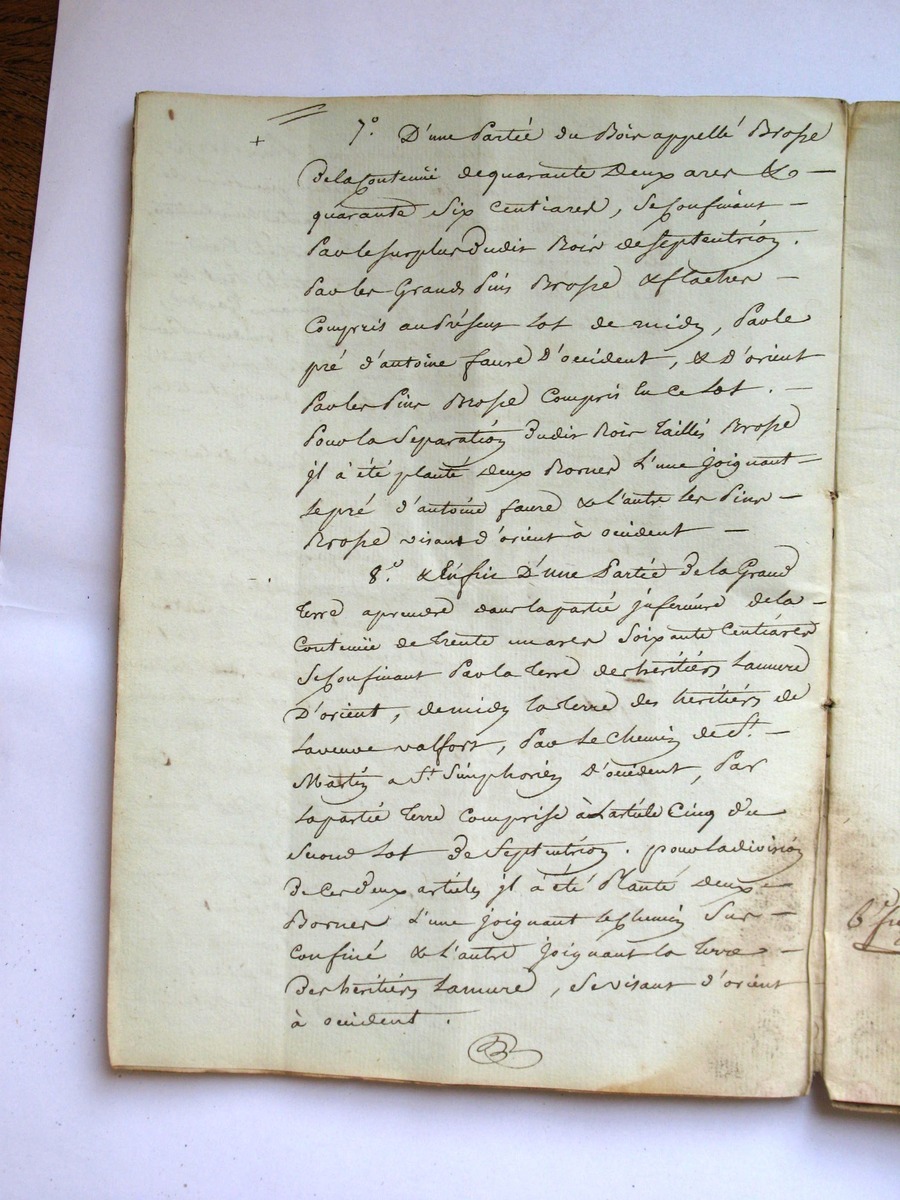 7.° D'une Partie du Bois appellé Brosse
De la Contenüe de quarante Deux ares & –
quarante Six Centiares, Se Confinant –
Par le surplus Dudit Bois de Septentrion.
Par les Grands Pins Brosse & flaches –
Compris au Présent Lot de midy, Par le
pré d'antoine faure D'occident, & D'orient
Par les Pins Brosse Compris En Ce Lot. –
Pour la Separation Dudit Bois Taillis Brosse
jl à été planté Deux Bornes L'une joignant –
Le pré d'antoine faure & L'autre les Pins –
Brosse visant d'orient à occident –
8.° & Enfin D'une Partie De la Grand
Terre aprendre dans la partie jnferieure de la –
Contenüe de Trente un ares Soixante Centiares
Se Confinant Par la Terre des héritiers Lamure
D'orient, de midy la Terre des héritiers de
La veuve valfort, Par Le Chemin de S.t –
Martin a S.t Simphorien D'occident, Par
La partie Terre Comprise à L'article Cinq du
Second Lot De Septentrion. pour la division
De Ces Deux articles jl à été Planté Deux –
Bornes L'une joignant le Chemin Sus –
Confiné & L'autre joignant la Terre –
Des héritiers Lamure, Se visant d'orient
à occident.